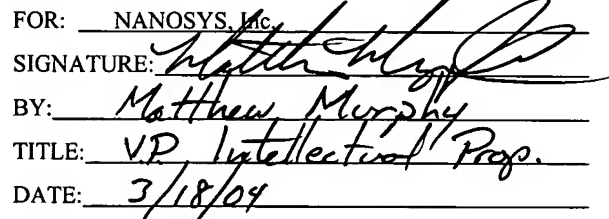 FOR: NANOSYS, Inc.
SIGNATURE: Matthew Murphy
BY: Matthew Murphy
TITLE: V.P. Intellectual Prop.
DATE: 3/18/04